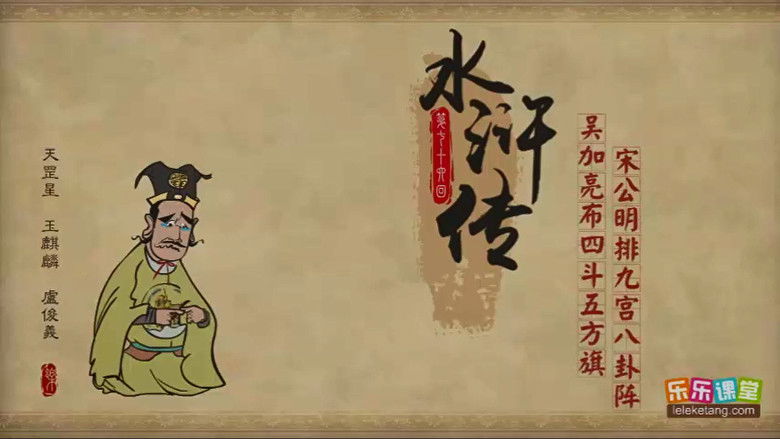 宋公明排九宫八卦阵
吴加亮布四斗五方旗
水浒传
第七十六回
天罡星 玉麒麟 盧俊義
乐乐课堂
leleketang.com